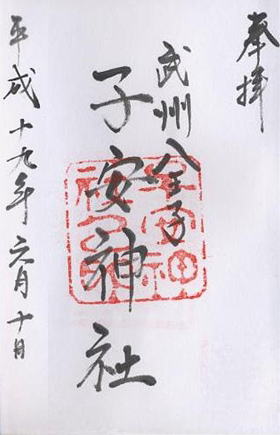 奉拝
武州八王子
子安神社
平成十九年六月十日